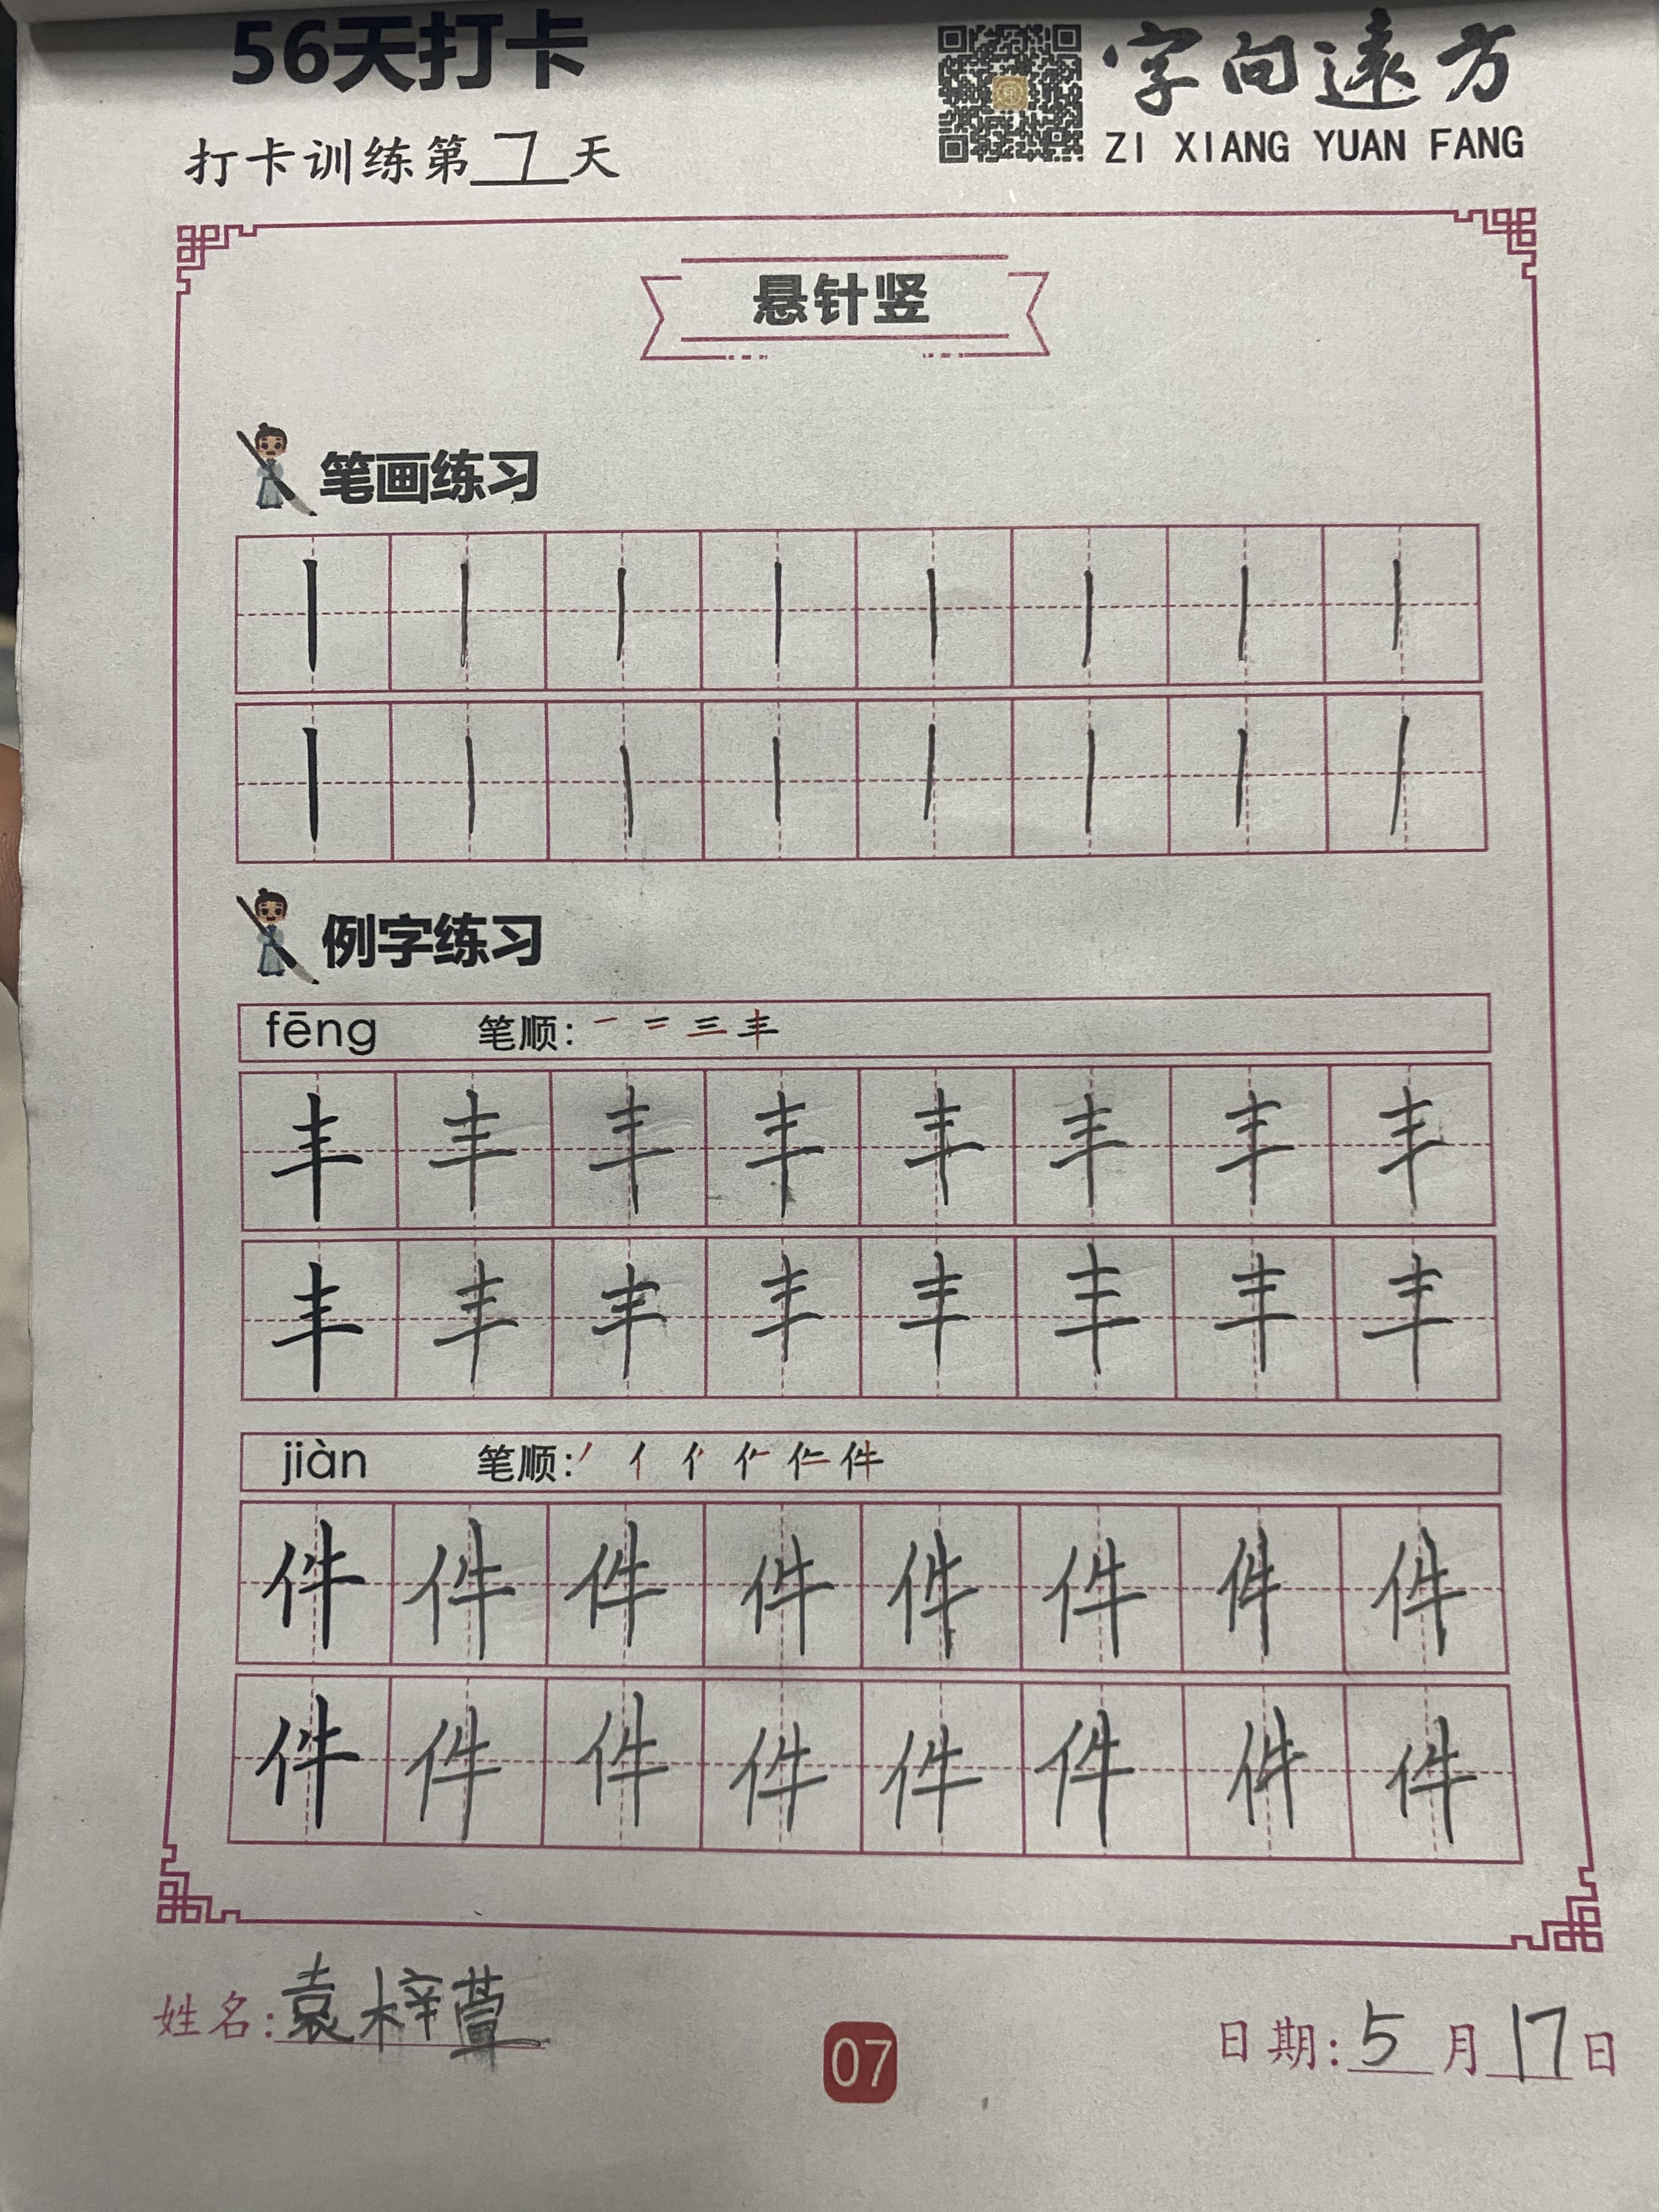 56天打卡
字向遠方
打卡训练第7天
ZI XIANG YUAN FANG
悬针竖
笔画练习
丨 丨 丨 丨 丨 丨 丨 丨
丨 丨 丨 丨 丨 丨 丨 丨
例字练习
fēng 笔顺: 一 二 三 丰
丰 丰 丰 丰 丰 丰 丰 丰
丰 丰 丰 丰 丰 丰 丰 丰
jiàn 笔顺: 丿 亻 件
件 件 件 件 件 件 件 件
件 件 件 件 件 件 件 件
姓名:袁梓萱
07
日期:5月17日